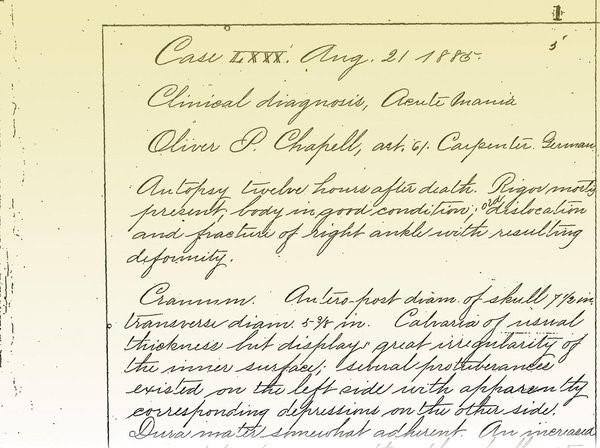 1
5
Case LXXX. Aug. 21 1885.
Clinical diagnosis, Acute Mania
Oliver P. Chapell, aet. 61. Carpenter. German
Autopsy twelve hours after death. Rigor mortis
present, body in good condition; old dislocation
and fracture of right ankle with resulting
deformity.
Cranium. Antero-post diam. of skull 7 1/2 in,
transverse diam. 5 3/8 in. Calvaria of usual
thickness but displays great irregularity of
the inner surface; several protuberances
existed on the left side with apparently
corresponding depressions on the other side.
Dura mater somewhat adherent. An increased